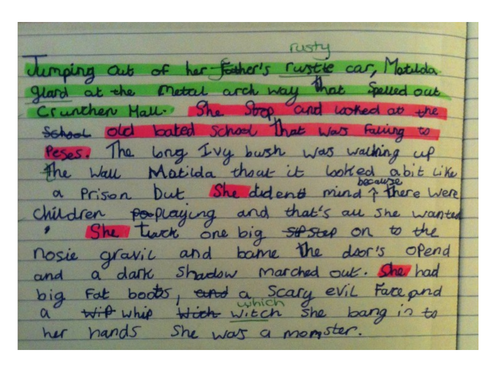 rusty
Jumping out of her father's rustie car, Matilda
glard at the metal arch way that spelled out
Crunchen Hall. She stop and looked at the
School old bated school that was falling to
peses. The long Ivy bush was walking up
the wall Matilda thout it looked abit like
because
a prison but She dident mind ↑ there were
children po playing and that's all she wanted
. She tuck one big step on to the
nosie gravil and bame the door's opend
and a dark Shadow marched out. She had
big fat boots, and a scary evil face and
which
a wif whip wich witch she bang in to
her hands She was a monster.